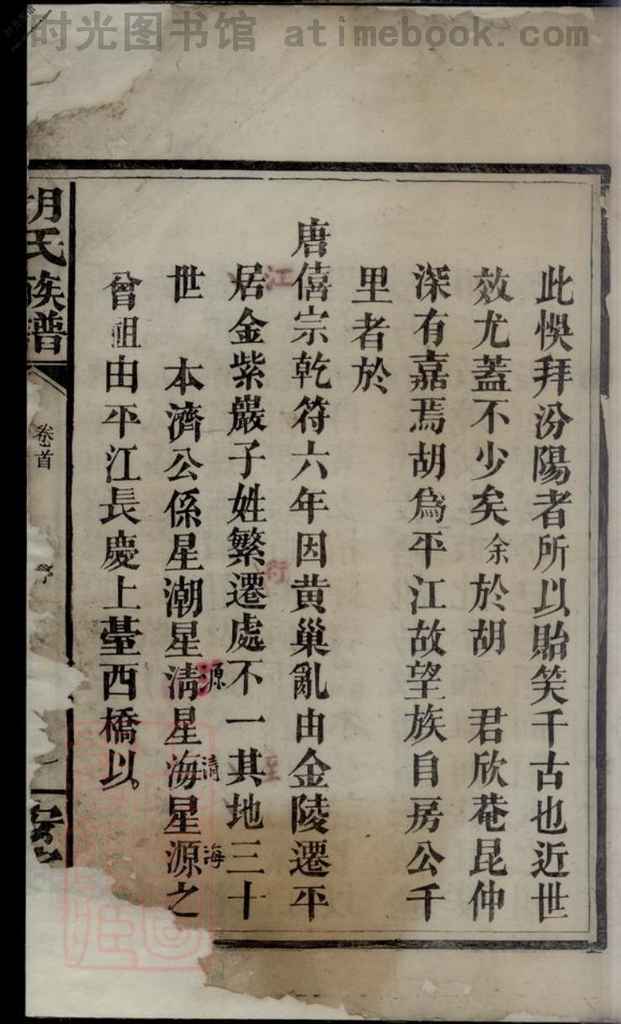 时光图书馆 atimebook.com
此悞拜汾陽者所以貽笑千古也近世
效尤蓋不少矣余於胡 君欣菴昆仲
深有嘉焉胡爲平江故望族自房公千
里者於
唐僖宗乾符六年因黃巢亂由金陵遷平
江
居金紫巖子姓繁遷處不一其地三十
衍
世 本濟公係星潮星清星海星源之
源
清
海
曾祖由平江長慶上臺西橋以
胡氏族譜
卷首